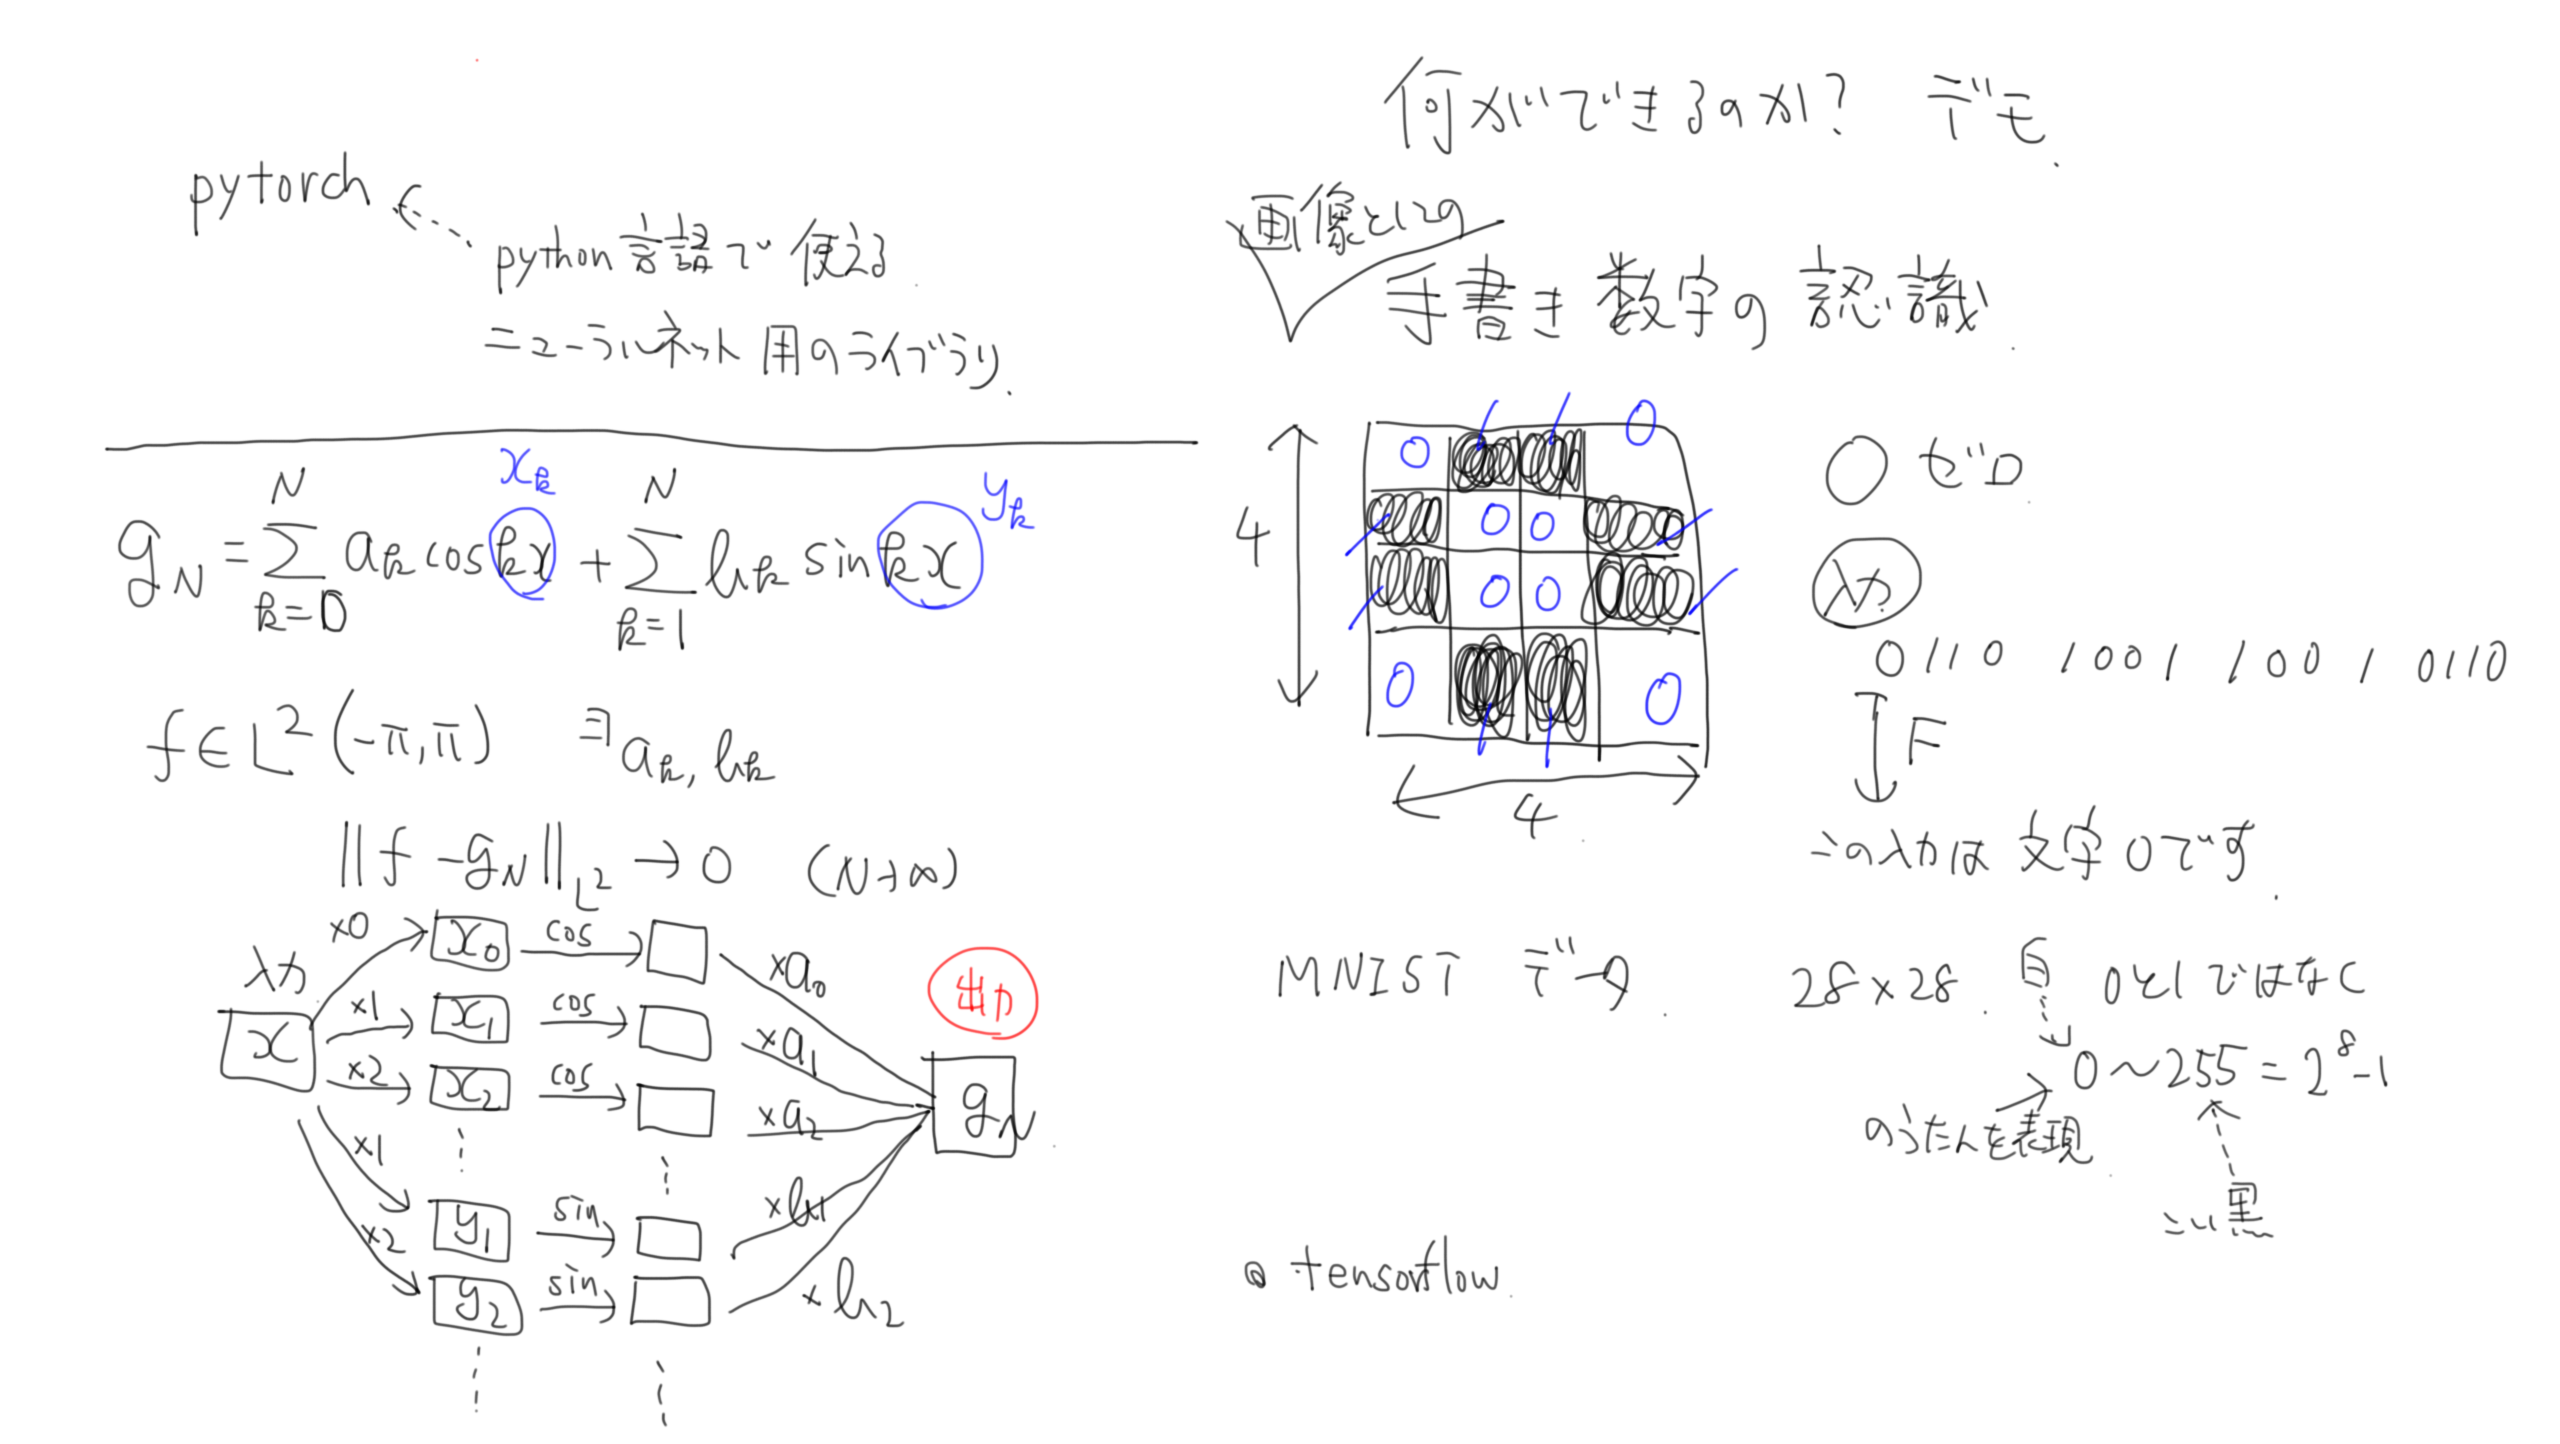 pytorch
python言語で使える
ニューラルネット用のライブラリ.
x_k
y_k
g_N = \sum_{k=0}^{N} a_k cos kx + \sum_{k=1}^{N} b_k sin kx
f ∈ L^2 (-π, π) ∃a_k, b_k
||f - g_N||_{L^2} → 0 (N→∞)
入力
x
×0 x_0 cos ×a_0
×1 x_1 cos ×a_1
×2 x_2 cos ×a_2
×1 y_1 sin ×b_1
×2 y_2 sin ×b_2
出力
g_N
何ができるのか? デモ.
画像としての
手書き数字の認識.
4
0 1 1 0
1 0 0 1
1 0 0 1
0 1 1 0
4
0 ゼロ
入力
0110 1001 1001 0110
F
この入力は文字0です.
MNIST データ. 28×28. 白 0と1ではなく
0〜255 = 2^8-1
のうたんを表現
こい黒
tensorflow